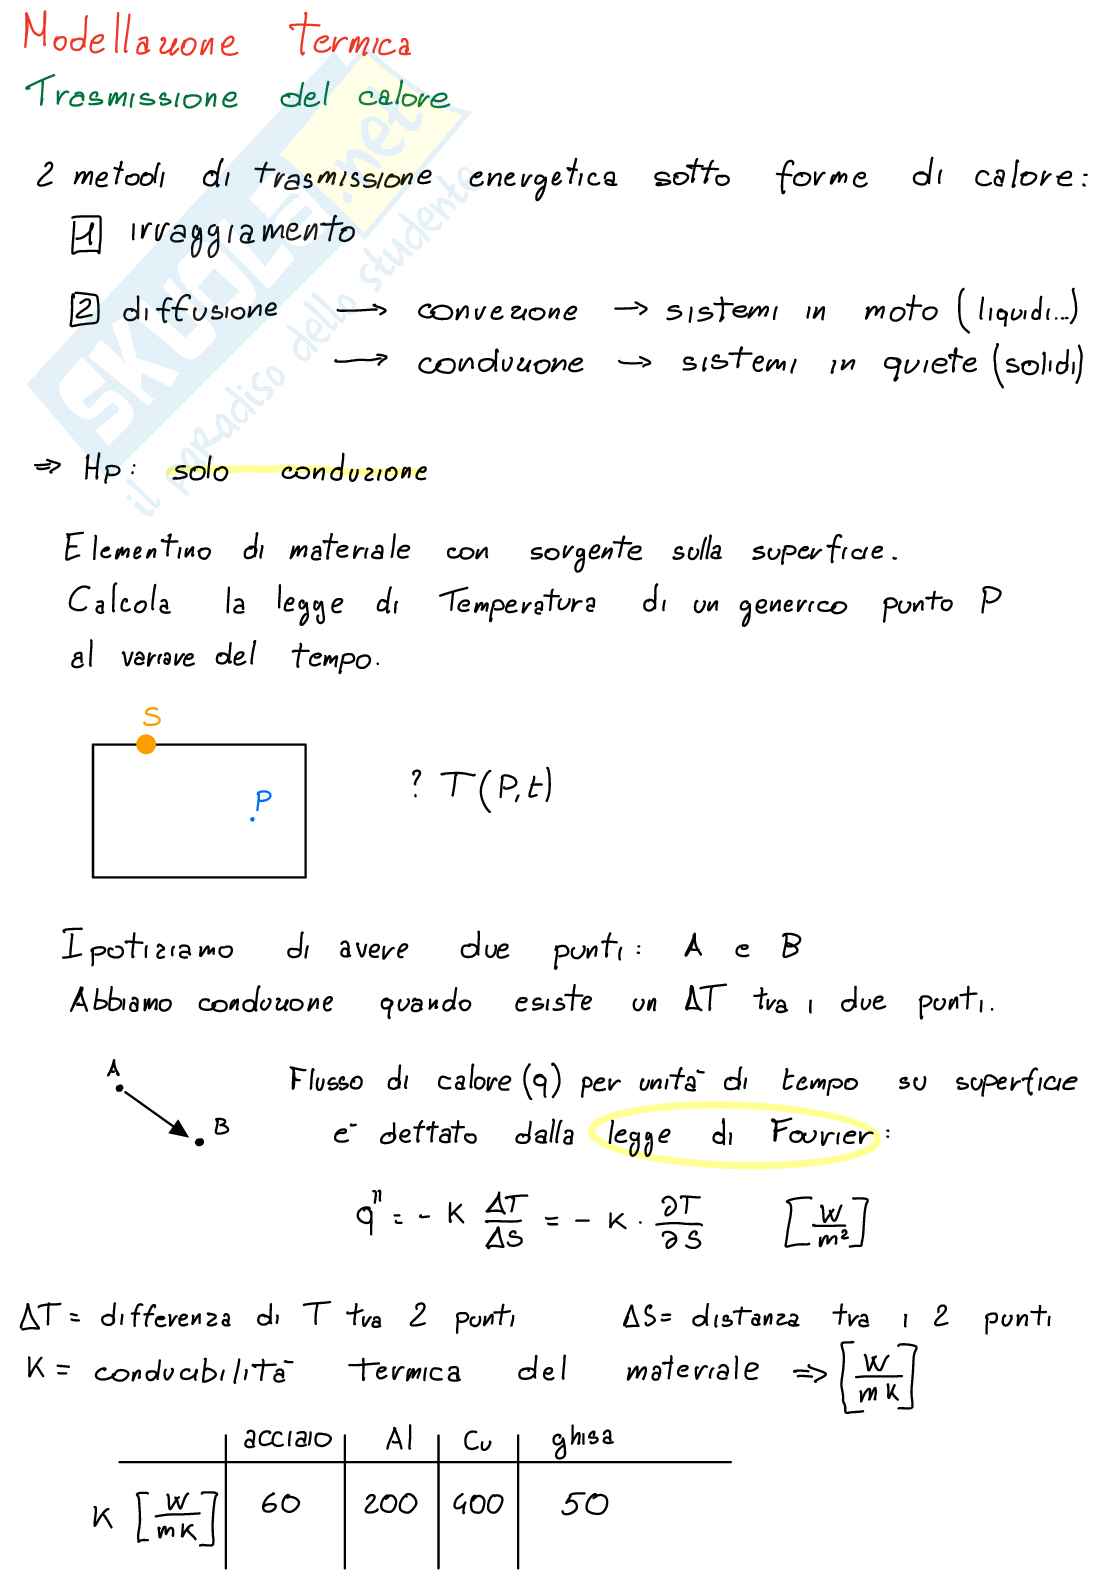 Modellazione termica
Trasmissione del calore
2 metodi di trasmissione energetica sotto forme di calore:
1 irraggiamento
2 diffusione → convezione → sistemi in moto (liquidi...)
→ conduzione → sistemi in quiete (solidi)
⇒ Hp: solo conduzione
Elementino di materiale con sorgente sulla superficie.
Calcola la legge di Temperatura di un generico punto P
al variare del tempo.
S
P
? T(P,t)
Ipotiziamo di avere due punti: A e B
Abbiamo conduzione quando esiste un ΔT tra i due punti.
A
B
Flusso di calore (q) per unità di tempo su superficie
è dettato dalla legge di Fourier:
q" = - K ΔT/ΔS = - K · ∂T/∂S [W/m²]
ΔT = differenza di T tra 2 punti ΔS = distanza tra i 2 punti
K = conducibilità termica del materiale ⇒ [W/mK]
acciaio Al Cu ghisa
K [W/mK] 60 200 400 50
SKUOLA.net
il paradiso dello studente